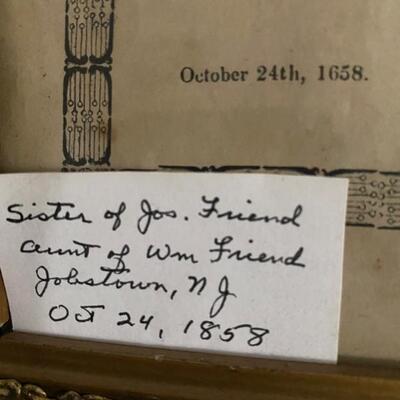 October 24th, 1658.
Sister of Jos. Friend
aunt of Wm Friend
Jobstown, NJ
Oct 24, 1858